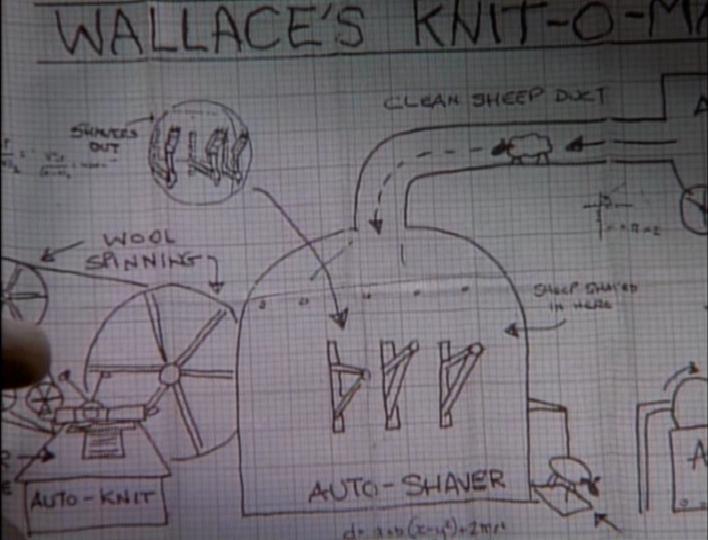 WALLACE'S KNIT-O-MA
CLEAN SHEEP DUCT
SHAVERS
OUT
WOOL
SPINNING
SHEEP SHAVED
IN HERE
AUTO-KNIT
AUTO-SHAVER
A